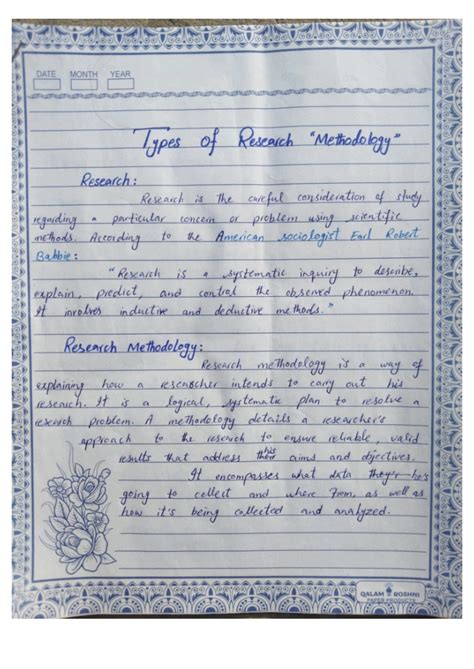 DATE MONTH YEAR
Types of Research "Methodology"
Research:
Research is the careful consideration of study
regarding a particular concern or problem using scientific
methods. According to the American sociologist Earl Robert
Babbie:
"Research is a systematic inquiry to describe,
explain, predict, and control the observed phenomenon.
It involves inductive and deductive methods."
Research Methodology:
Research methodology is a way of
explaining how a researcher intends to carry out his
research. It is a logical, systematic plan to resolve a
research problem. A methodology details a researcher's
approach to the research to ensure reliable, valid
results that address his aims and objectives.
It encompasses what data they're he's
going to collect and where from, as well as
how it's being collected and analyzed.
QALAM ROSHNI
PAPER PRODUCTS